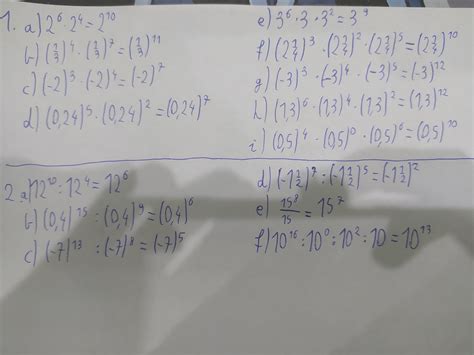 1. a) 2⁶ · 2⁴ = 2¹⁰
b) (2/3)⁴ · (2/3)⁷ = (2/3)¹¹
c) (-2)³ · (-2)⁴ = (-2)⁷
d) (0,24)⁵ · (0,24)² = (0,24)⁷
e) 3⁶ · 3 · 3² = 3⁹
f) (2 3/4)³ · (2 3/4)² · (2 3/4)⁵ = (2 3/4)¹⁰
g) (-3)³ · (-3)⁴ · (-3)⁵ = (-3)¹²
h) (1,3)⁶ · (1,3)⁴ · (1,3)² = (1,3)¹²
i) (0,5)⁴ · (0,5)⁰ · (0,5)⁶ = (0,5)¹⁰
2. a) 12¹⁰ : 12⁴ = 12⁶
b) (0,4)¹⁵ : (0,4)⁹ = (0,4)⁶
c) (-7)¹³ : (-7)⁸ = (-7)⁵
d) (-1 1/2)⁷ : (-1 1/2)⁵ = (-1 1/2)²
e) 15⁸/15 = 15⁷
f) 10¹⁶ : 10⁰ : 10² : 10 = 10¹³